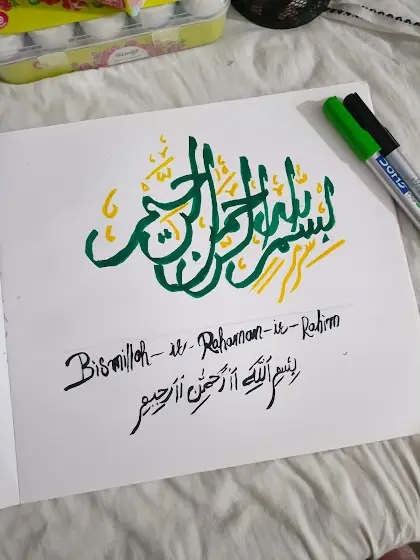 بسم الله الرحمن الرحيم
Bismillah-ir-Rahaman-ir-Rahim
بِسْمِ اللَّهِ الرَّحْمٰنِ الرَحِيمِ
DOMS